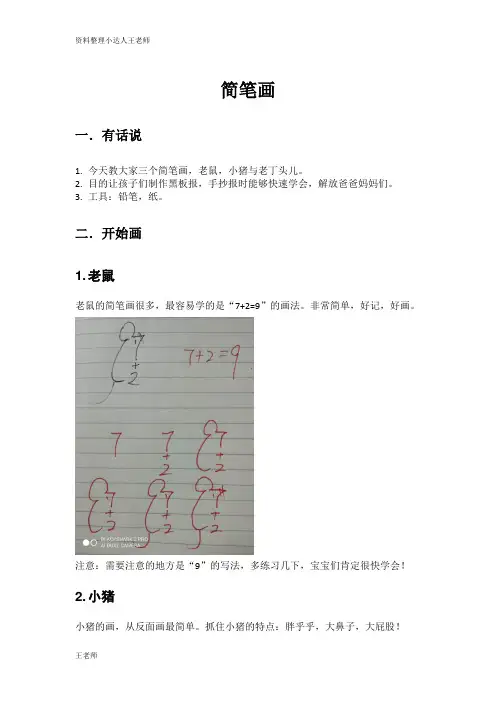 资料整理小达人王老师
简笔画
一．有话说
1. 今天教大家三个简笔画，老鼠，小猪与老丁头儿。
2. 目的让孩子们制作黑板报，手抄报时能够快速学会，解放爸爸妈妈们。
3. 工具：铅笔，纸。
二．开始画
1. 老鼠
老鼠的简笔画很多，最容易学的是“7+2=9”的画法。非常简单，好记，好画。
7
+
2
7+2=9
7
7
+
2
7
+
2
7
+
2
7
+
2
7
+
2
注意：需要注意的地方是“9”的写法，多练习几下，宝宝们肯定很快学会！
2. 小猪
小猪的画，从反面画最简单。抓住小猪的特点：胖乎乎，大鼻子，大屁股！
王老师